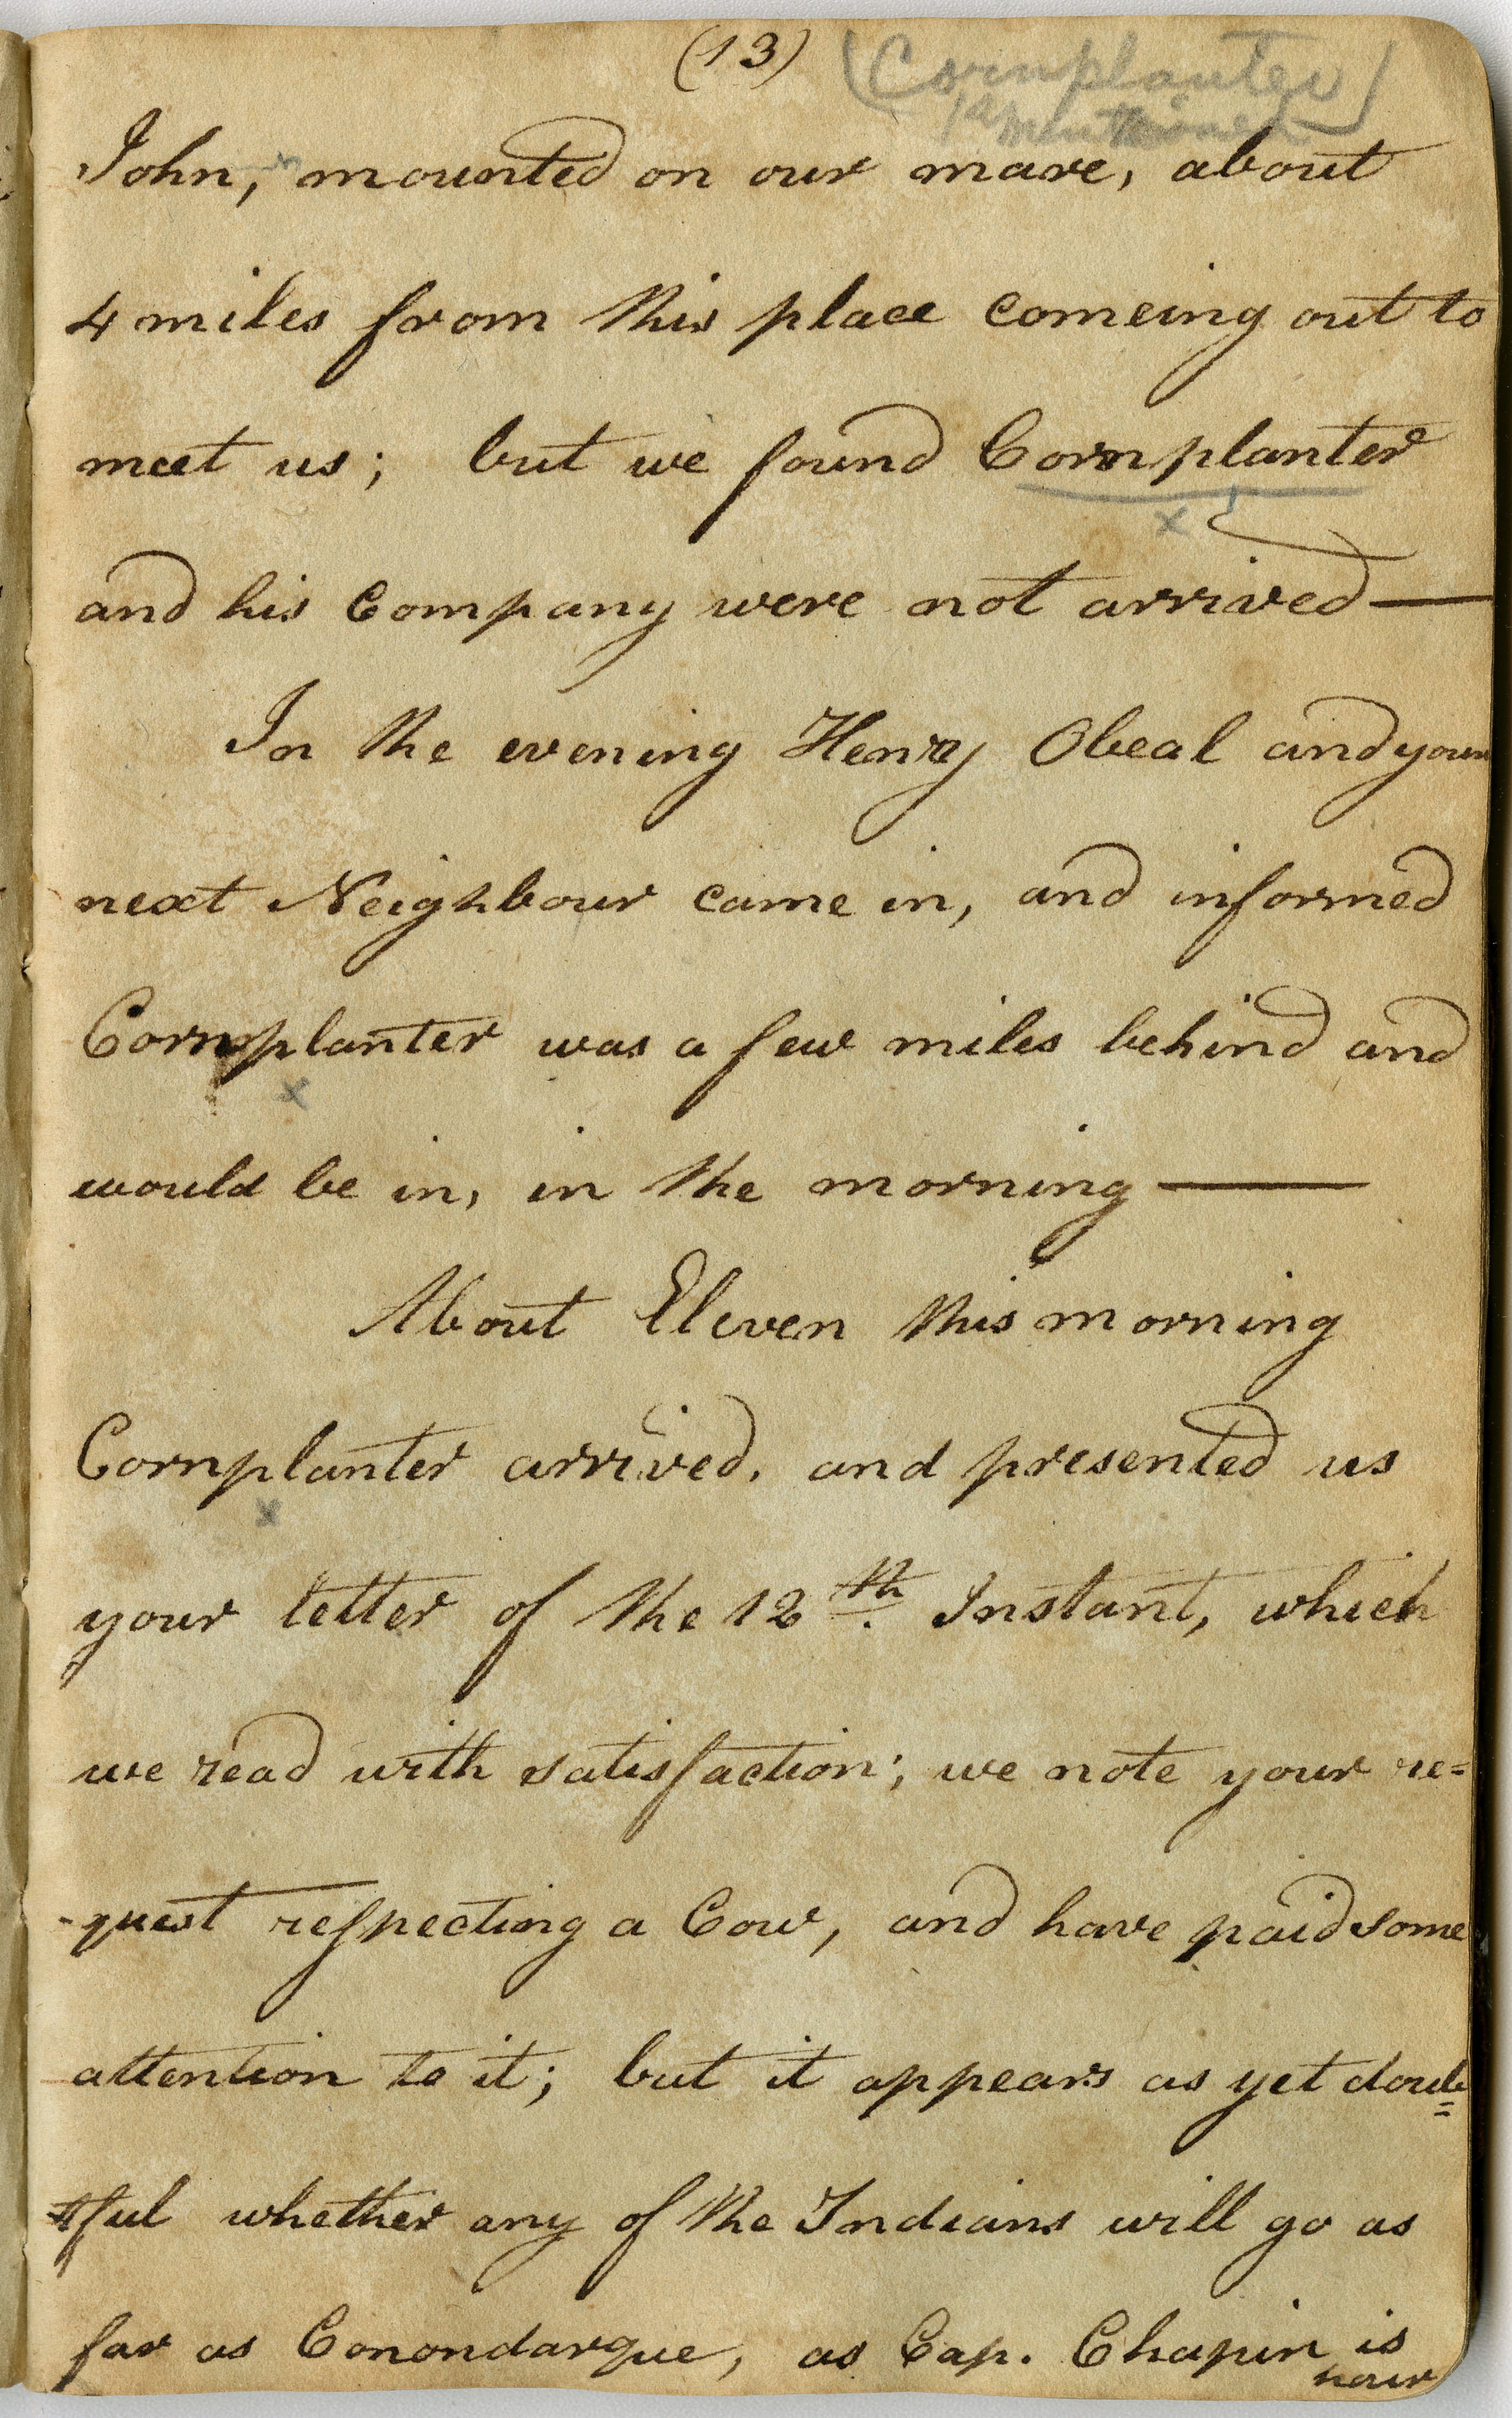 (13)
(Cornplanter
mentioned)
John, mounted on our mare, about
4 miles from this place comeing out to
meet us; but we found Cornplanter
x
and his Company were not arrived—
In the evening Henry Obeal and your
next Neighbour came in, and informed
Cornplanter was a few miles behind and
x
would be in, in the morning —
About Eleven this morning
Cornplanter arrived, and presented us
x
your letter of the 12th. Instant, which
we read with satisfaction; we note your re=
-quest respecting a Cow, and have paid some
attention to it; but it appears as yet doub=
=tful whether any of the Indians will go as
far as Conondarque, as Cap. Chapin is
now